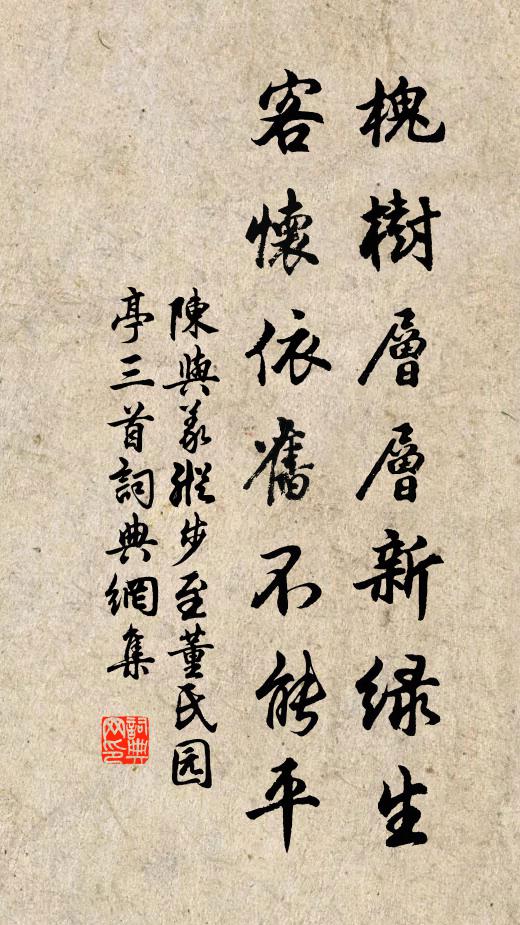 槐樹層層新緑生
客懷依舊不能平
陳與義縱步至董氏园
亭三首詞典網集
詞典
网印